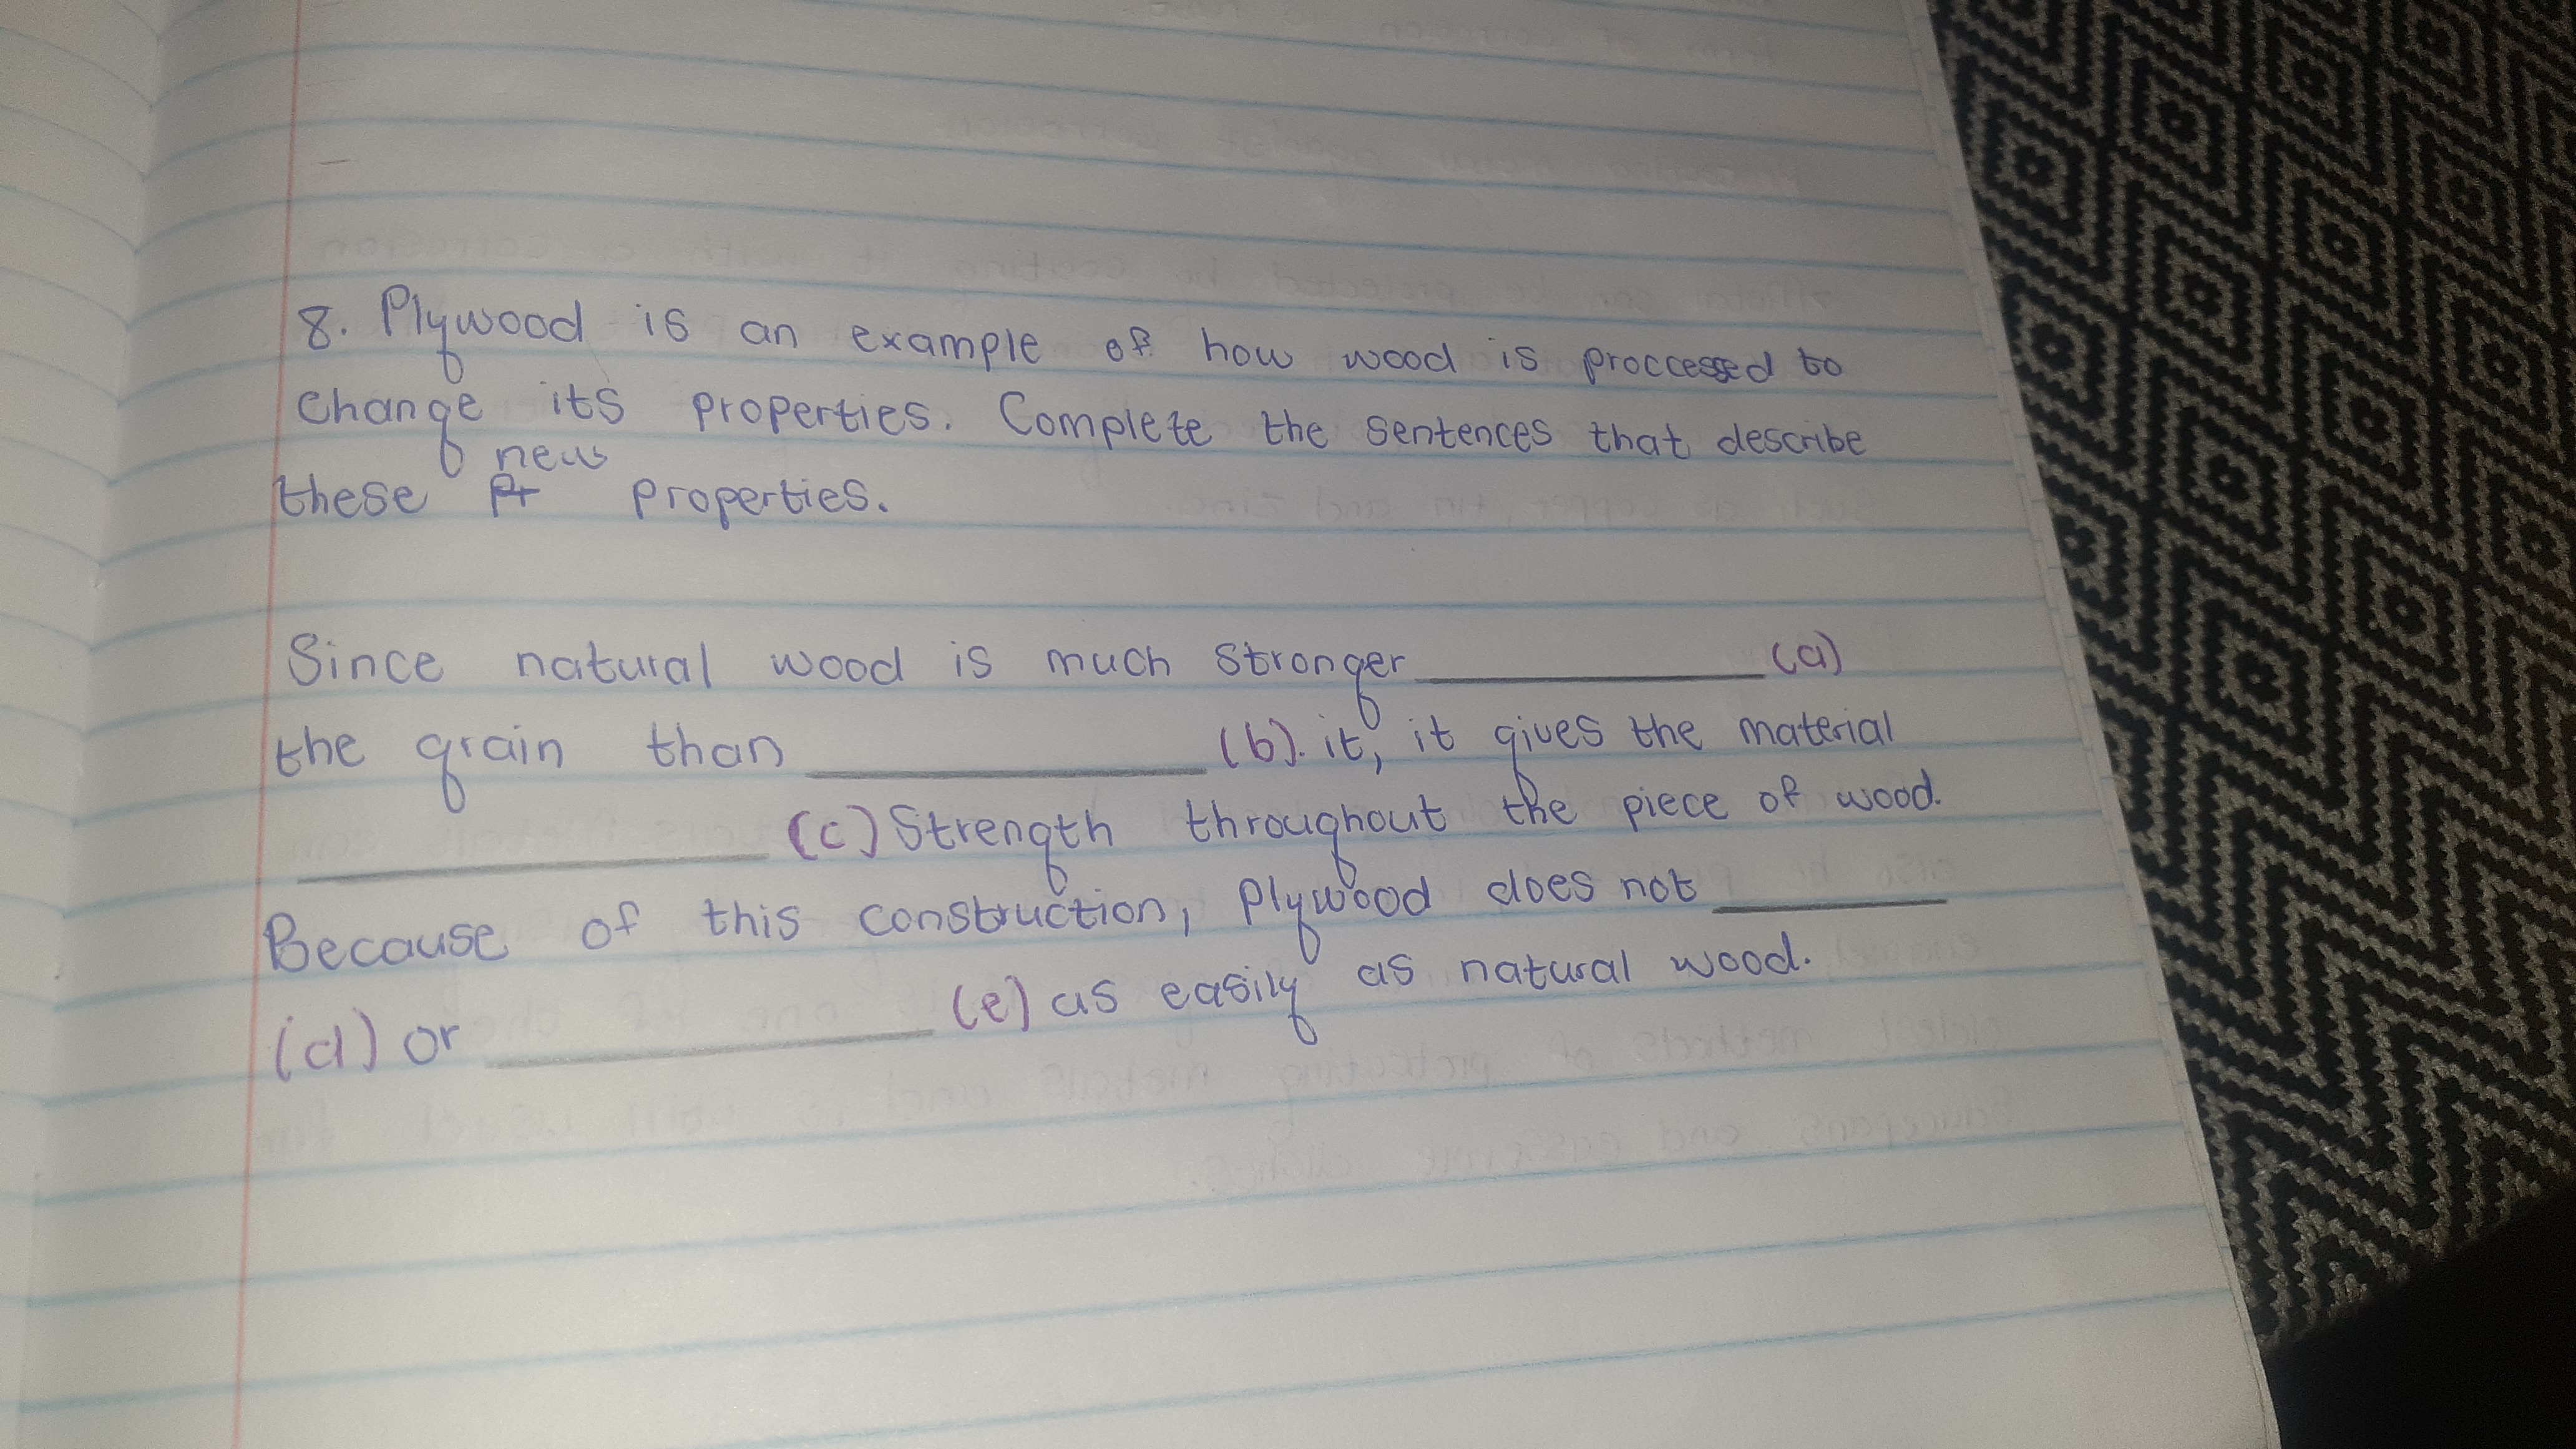 8. Plywood is an example of how wood is proccessed to
change its properties. Complete the sentences that describe
new
these Pr properties.
Since natural wood is much stronger __________ (a)
the grain than __________ (b). it, it gives the material
__________ (c) Strength throughout the piece of wood.
Because of this construction, Plywood does not __________
(d) or __________ (e) as easily as natural wood.